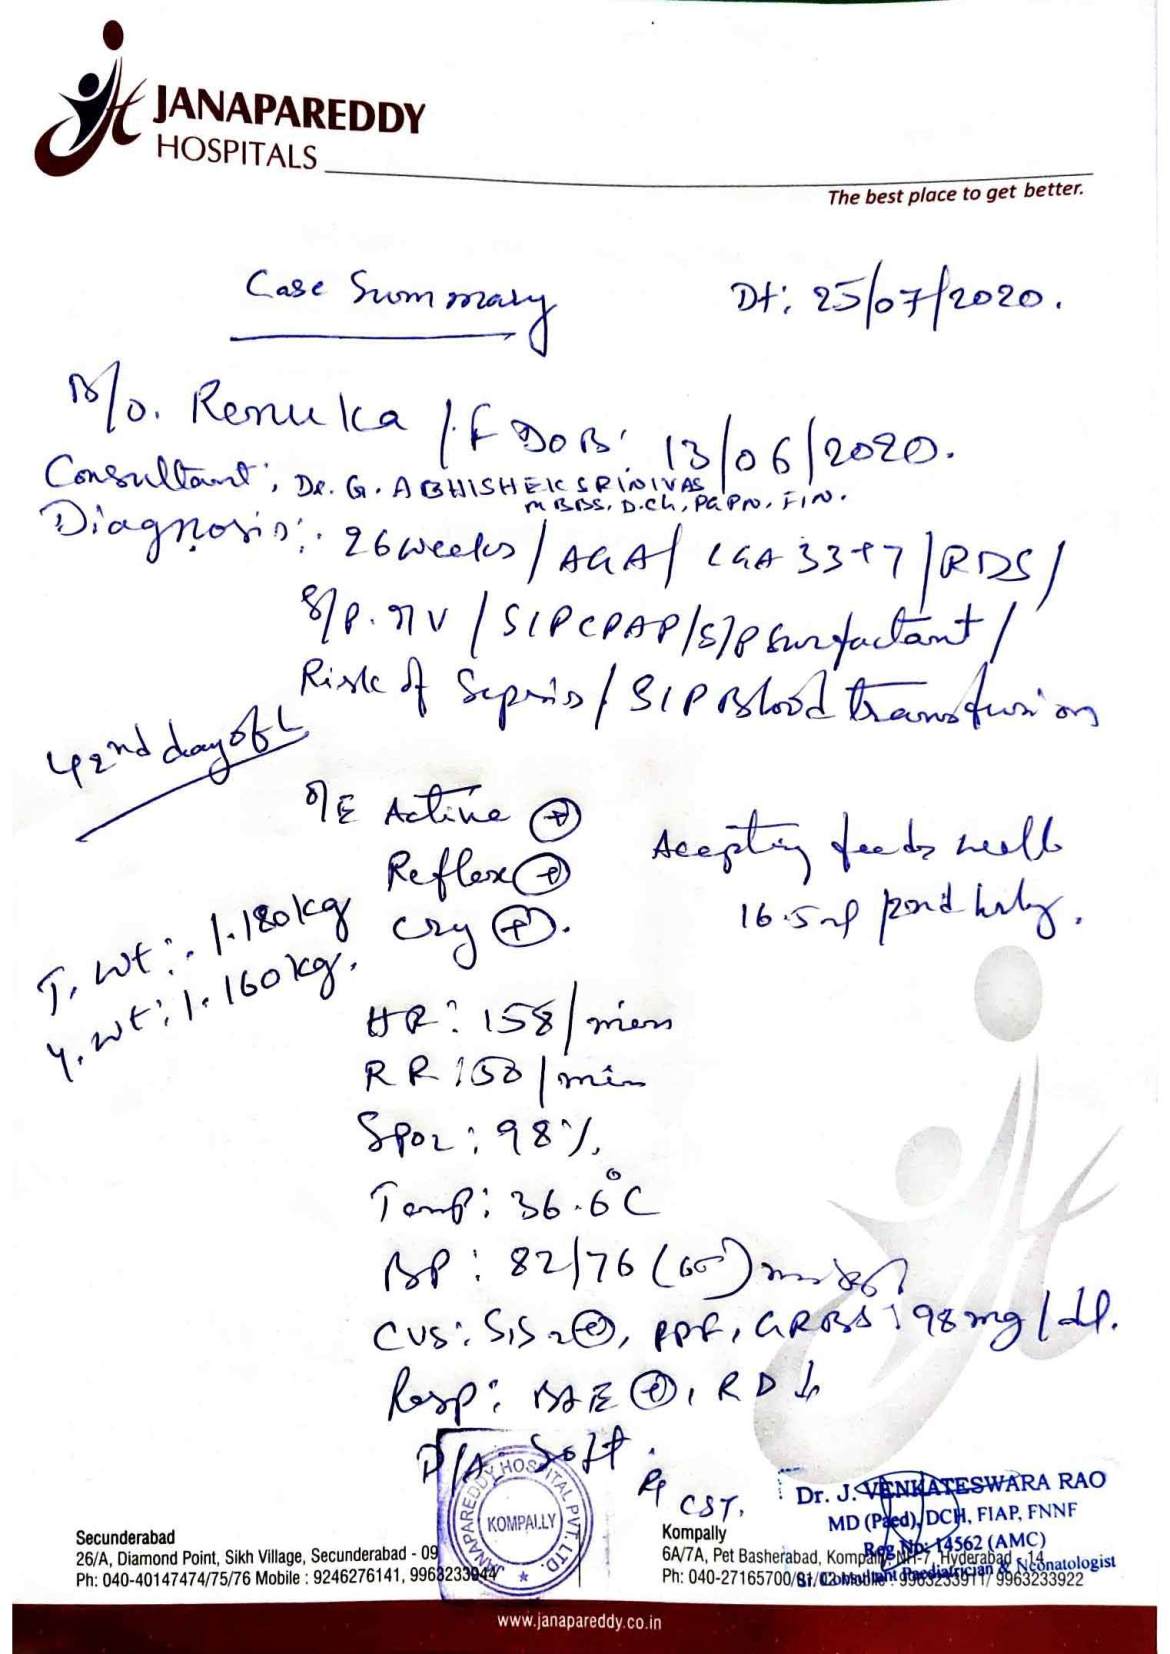 JANAPAREDDY
HOSPITALS
The best place to get better.
Case Summary Dt: 25/07/2020.
B/o. Renuka /F DOB: 13/06/2020.
Consultant: Dr. G. ABHISHEK SRINIVAS
MBBS, D.Ch, PGPN, FIN.
Diagnosis: 26 weeks / AGA / CGA 33+7 / RDS /
S/P. IV / S/P CPAP / S/P Surfactant /
Risk of Sepsis / S/P Blood transfusion
42nd day of L
O/E Active ⊕
Reflex ⊕
Cry ⊕.
Acepting feeds well
16.5ml 2nd hrly.
T. wt: 1.180kg
Y. wt: 1.160kg.
HR: 158/min
RR: 58/min
SpO2: 98%.
Temp: 36.6°C
BP: 82/76 mm
CVS: S1S2 ⊕, PPF, GRBS: 98mg/dl.
Resp: BAE ⊕, RD
P/A: Soft.
CST.
JANAPAREDDY HOSPITAL PVT. LTD.
KOMPALLY
Dr. J. VENKATESWARA RAO
MD (Paed), DCH, FIAP, FNNF
Reg No: 14562 (AMC)
Sr. Consultant Paediatrician & Neonatologist
Secunderabad
26/A, Diamond Point, Sikh Village, Secunderabad - 09
Ph: 040-40147474/75/76 Mobile : 9246276141, 9963233944
Kompally
6A/7A, Pet Basherabad, Kompally, NH-7, Hyderabad - 14
Ph: 040-27165700/81/02 Mobile : 9963233911/ 9963233922
www.janapareddy.co.in